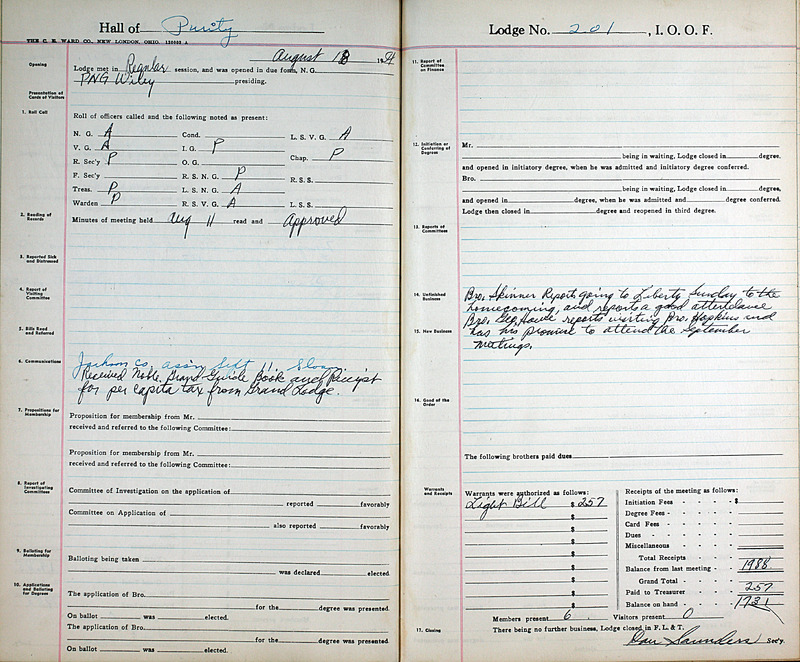 Hall of Purity
THE C. E. WARD CO., NEW LONDON, OHIO.
August 18 19
Opening
Lodge met in Regular session, and was opened in due form, N. G.
PNG Wiley presiding.
Presentation of Cards of Visitors
1. Roll Call
Roll of officers called and the following noted as present:
N. G. A Cond. L. S. V. G. A
V. G. A I. G. P Chap. P
R. Sec'y P O. G.
F. Sec'y R. S. N. G. P R. S. S.
Treas. P L. S. N. G. A
Warden P R. S. V. G. A L. S. S.
2. Reading of Records
Minutes of meeting held Aug 11 read and Approved
3. Reported Sick and Distressed
4. Report of Visiting Committee
5. Bills Read and Referred
6. Communications
Jackson Co. ass'n Sept 11 Sloan
Received Noble Grand Guide Book and Receipt
for per capita tax from Grand Lodge.
7. Propositions for Membership
Proposition for membership from Mr.
received and referred to the following Committee:
Proposition for membership from Mr.
received and referred to the following Committee:
8. Report of Investigating Committee
Committee of Investigation on the application of
reported favorably
Committee on Application of
also reported favorably
9. Balloting for Membership
Balloting being taken
was declared elected.
10. Applications and Balloting for Degrees
The application of Bro.
for the degree was presented.
On ballot was elected.
The application of Bro.
for the degree was presented.
On ballot was elected.
Lodge No. 201, I. O. O. F.
11. Report of Committee on Finance
12. Initiation or Conferring of Degrees
Mr.
being in waiting, Lodge closed in degree,
and opened in initiatory degree, when he was admitted and initiatory degree conferred.
Bro.
being in waiting, Lodge closed in degree,
and opened in degree, when he was admitted and degree conferred.
Lodge then closed in degree and reopened in third degree.
13. Reports of Committees
14. Unfinished Business
Bro. Skinner Reports going to Liberty Sunday to the
homecoming, and reports a good attendance
Bro. Geo. House reports visiting Bro. Hopkins and
15. New Business
has his promise to attend the September
meetings.
16. Good of the Order
The following brothers paid dues
Warrants and Receipts
Warrants were authorized as follows:
Light Bill $ 257
$
$
$
$
$
$
$
$
Receipts of the meeting as follows:
Initiation Fees $
Degree Fees
Card Fees
Dues
Miscellaneous
Total Receipts
Balance from last meeting 1988
Grand Total
Paid to Treasurer 257
Balance on hand 1731
Members present 6 Visitors present 0
17. Closing
There being no further business, Lodge closed in F. L. & T.
Dan Saunders Sec'y.